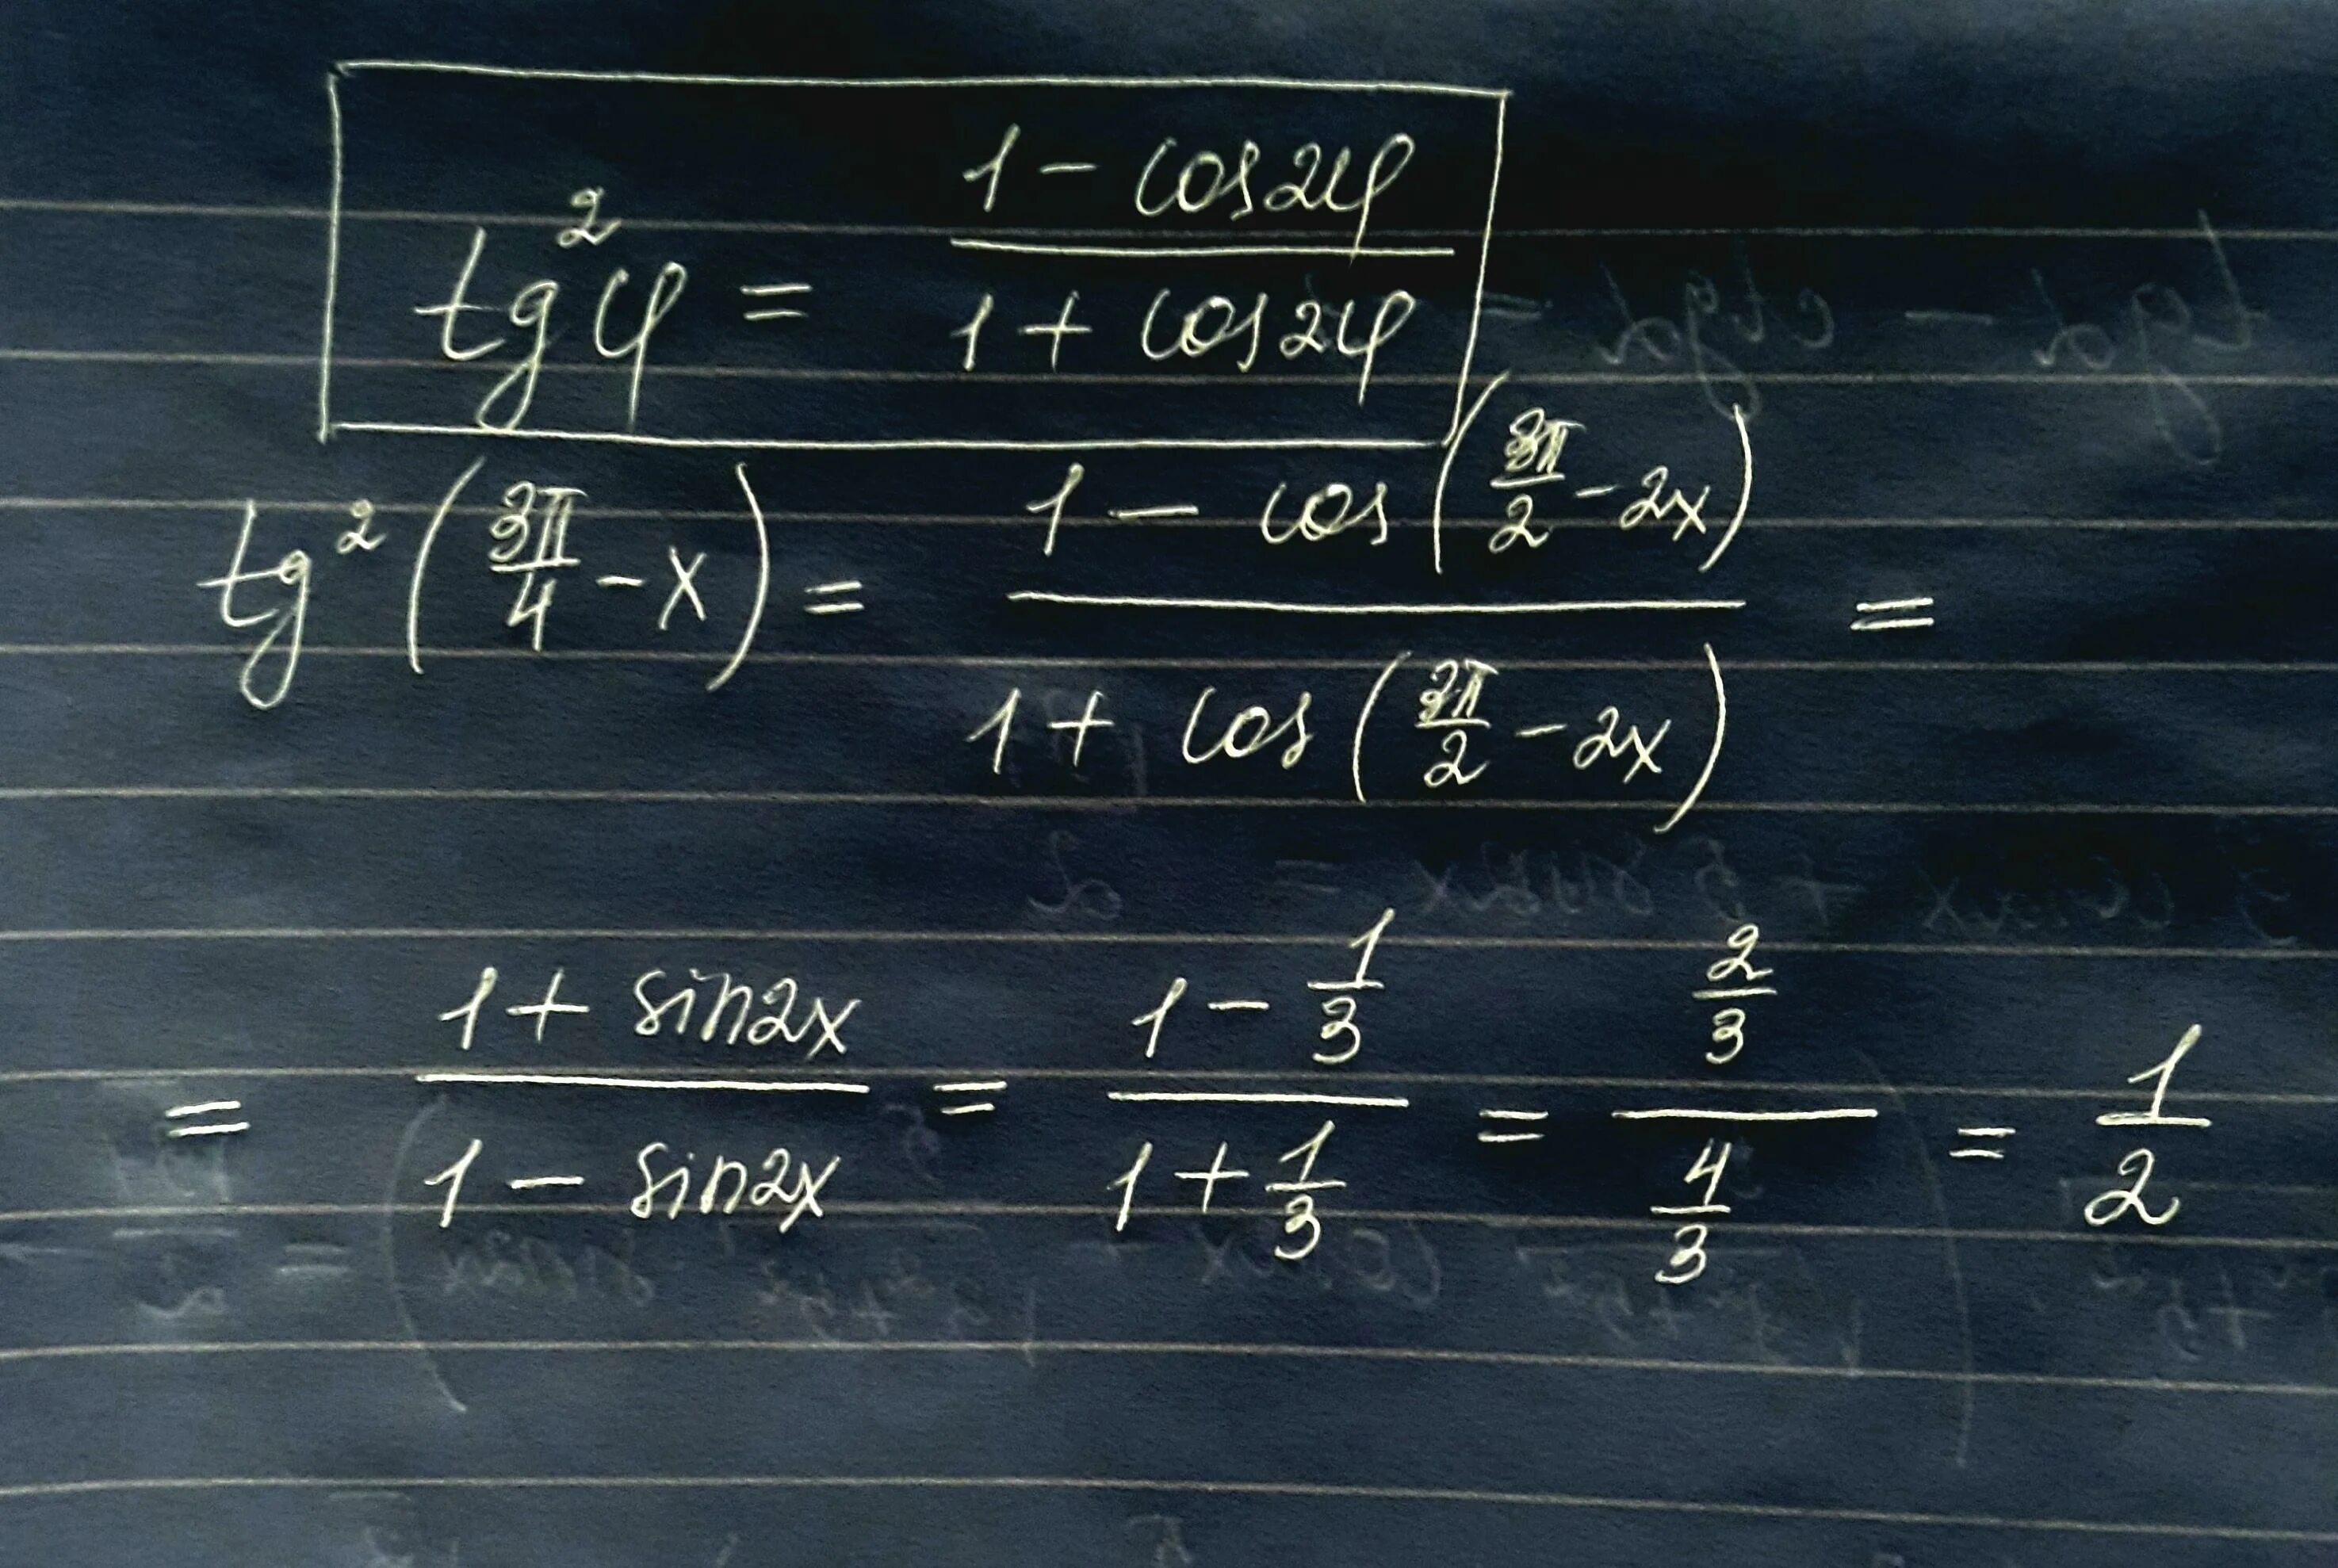 tg²φ = (1 - cos2φ)/(1 + cos2φ)
tg²(3π/4 - x) = (1 - cos(3π/2 - 2x))/(1 + cos(3π/2 - 2x)) =
= (1 + sin2x)/(1 - sin2x) = (1 - 1/3)/(1 + 1/3) = (2/3)/(4/3) = 1/2